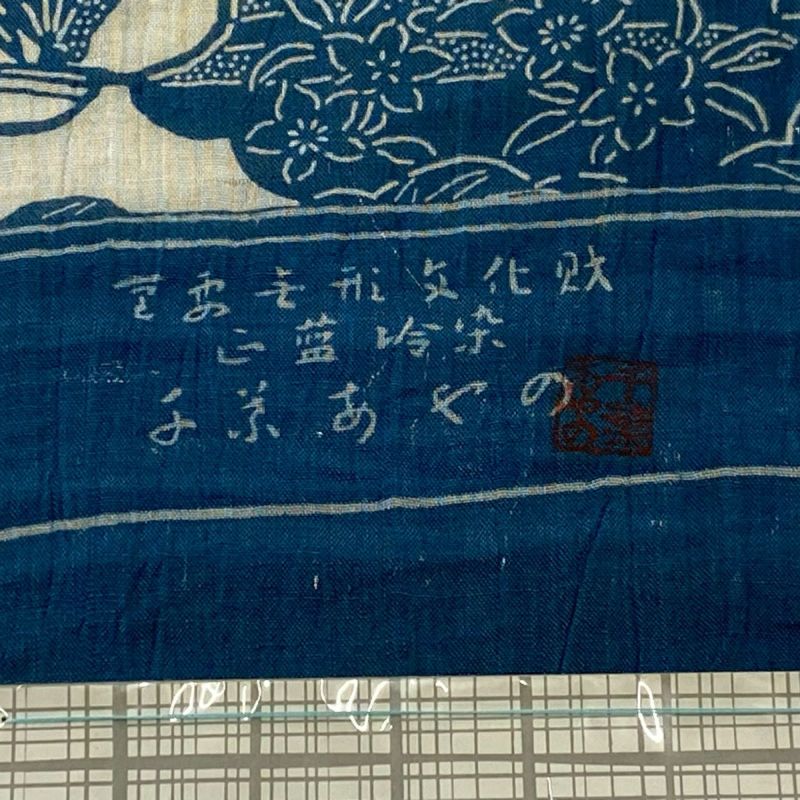 重要無形文化財
正藍冷染
千葉あやの